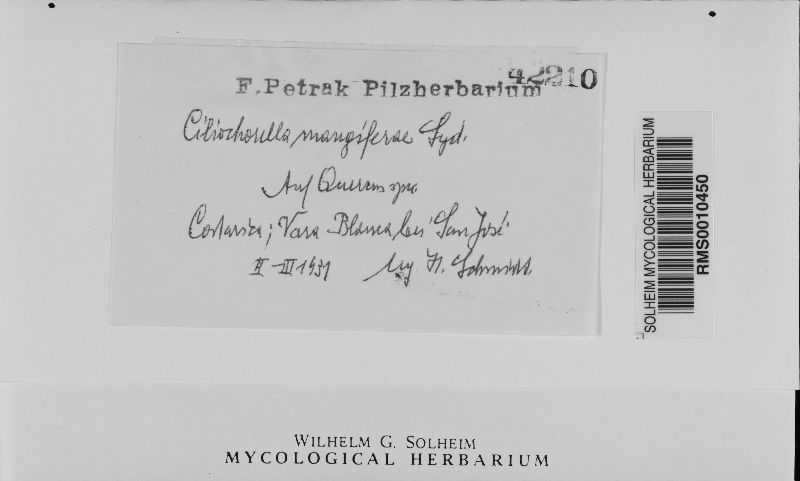 42210
F. Petrak Pilzherbarium
Ciliochorella mangiferae Syd.
Auf Quercus spec.
Costarika; Vara Blanca bei San José
II-III 1931 leg. H. Schmidt.
SOLHEIM MYCOLOGICAL HERBARIUM
RMS0010450
WILHELM G. SOLHEIM
MYCOLOGICAL HERBARIUM